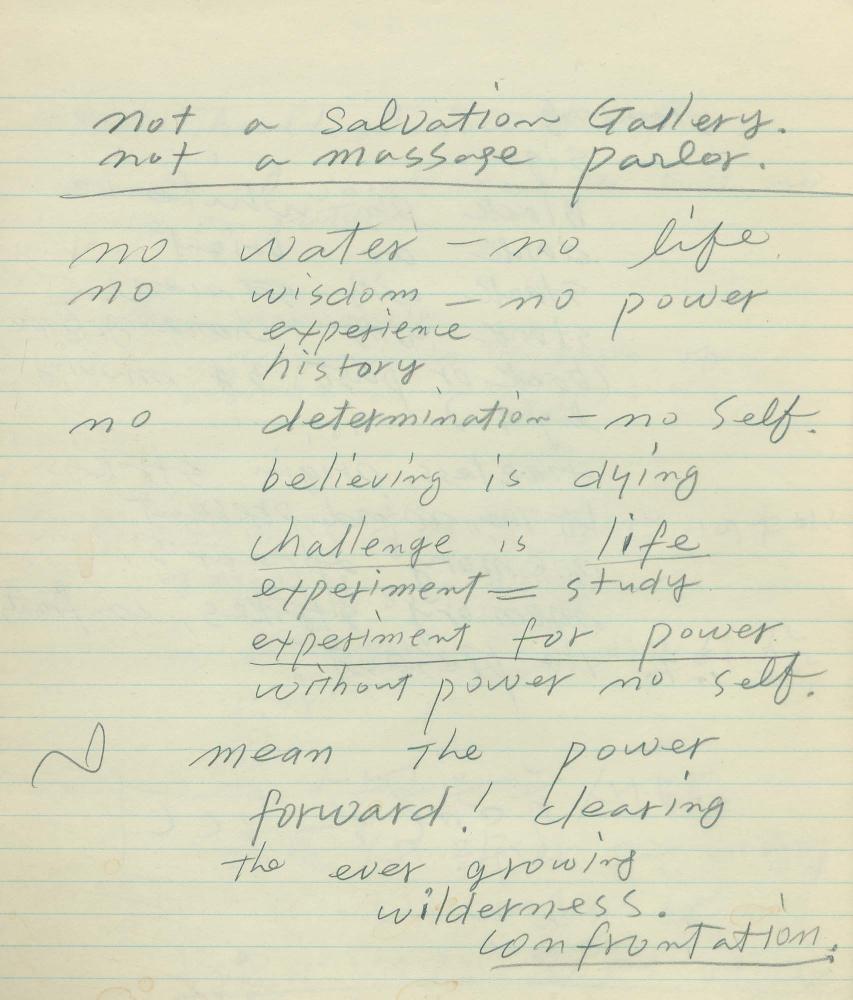 not a Salvation Gallery.
not a massage parlor.
no water – no life.
no wisdom – no power
experience
history
no determination – no Self.
believing is dying
challenge is life
experiment = study
experiment for power
without power no self.
I mean the power
forward! clearing
the ever growing
wilderness.
confrontation.